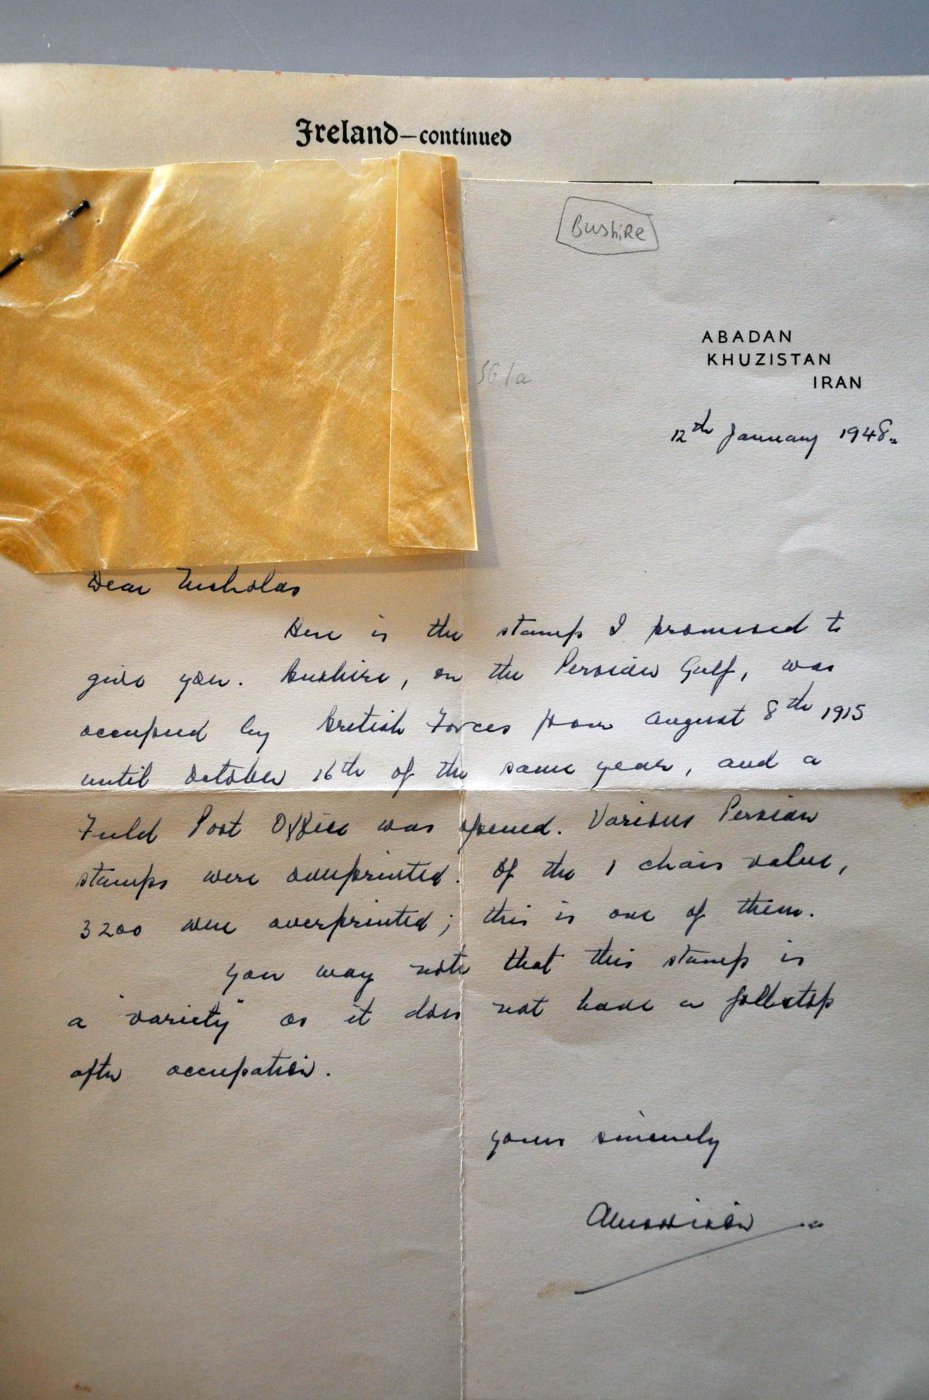 Ireland—continued
Bushire
ABADAN
KHUZISTAN
IRAN
SG 1a
12th January 1948.
Dear Nicholas
Here is the stamp I promised to
give you. Bushire, on the Persian Gulf, was
occupied by British Forces from August 8th 1915
until October 16th of the same year, and a
Field Post Office was opened. Various Persian
stamps were overprinted. Of the 1 chais value,
3200 were overprinted; this is one of them.
You may note that this stamp is
a "variety" as it does not have a fullstop
after occupation.
Yours sincerely